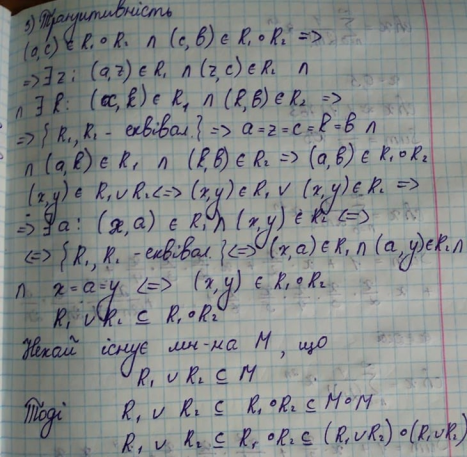 3) Транзитивність
(a,c) ∈ R₁∘R₂ ∧ (c,b) ∈ R₁∘R₂ =>
=> ∃z: (a,z) ∈ R₁ ∧ (z,c) ∈ R₂ ∧
∧ ∃ k: (c,k) ∈ R₁ ∧ (k,b) ∈ R₂ =>
=> {R₁,R₂ - еквівал.} => a=z=c=k=b ∧
∧ (a,k) ∈ R₁ ∧ (k,b) ∈ R₂ => (a,b) ∈ R₁∘R₂
(x,y) ∈ R₁∪R₂ <=> (x,y) ∈ R₁ ∨ (x,y) ∈ R₂ =>
=> ∃a: (x,a) ∈ R₁ ∧ (x,y) ∈ R₂ <=>
<=> {R₁,R₂ - еквівал.} <=> (x,a) ∈ R₁ ∧ (a,y) ∈ R₂ ∧
∧ x=a=y <=> (x,y) ∈ R₁∘R₂
R₁ ∪ R₂ ⊆ R₁∘R₂
Нехай існує мн-на M, що
R₁ ∪ R₂ ⊆ M
Тоді R₁ ∪ R₂ ⊆ R₁∘R₂ ⊆ M∘M
R₁ ∪ R₂ ⊆ R₁∘R₂ ⊆ (R₁∪R₂)∘(R₁∪R₂)